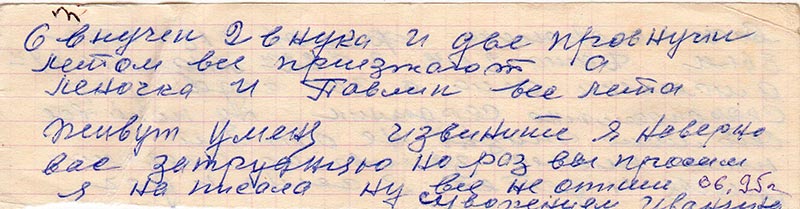 6 внучек 2 внука и две провнучки
летом все приезжают а
леночка и Павлик все лета
живут у меня извините я наверно
вас затрудняю но раз вы просили
я на писала ну все не опиш 06,95г
с уважением Иванина